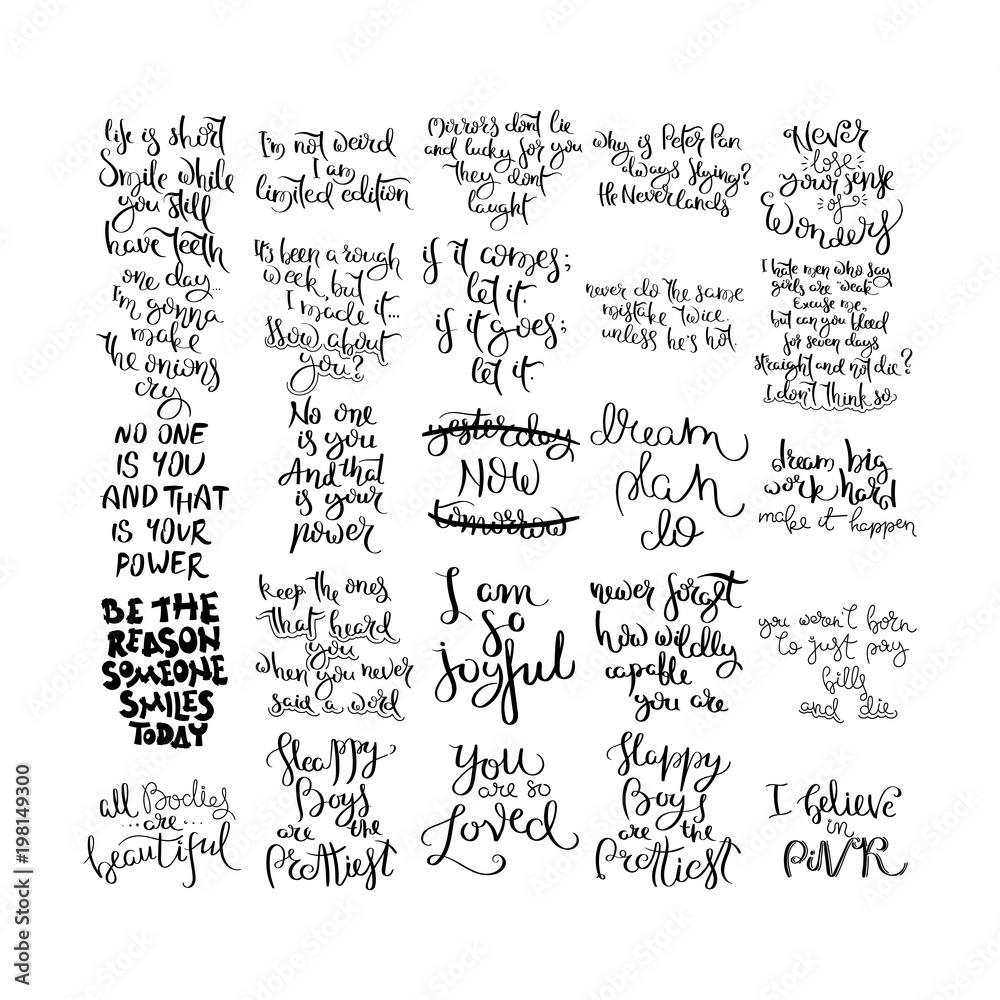 life is short
Smile while
you still
have teeth
one day...
I'm gonna
make
the onions
cry
NO ONE
IS YOU
AND THAT
IS YOUR
POWER
BE THE
REASON
SOMEONE
SMILES
TODAY
all Bodies
...are...
beautiful
I'm not weird
I am
limited edition
It's been a rough
week, but
I made it...
How about
you?
No one
is you
And that
is your
power
keep the ones
that heard
you
when you never
said a word
Happy
Boys
are the
Prettiest
Mirrors dont lie
and lucky for you
they dont
laught
if it comes;
let it.
if it goes;
let it.
yesterday
NOW
tomorrow
I am
so
joyful
You
are so
Loved
why is Peter Pan
always flying?
He Neverlands
never do the same
mistake twice.
unless he's hot.
dream
plan
do
never forget
how wildly
capable
you are
Happy
Boys
are the
Prettiest
Never
lose
your sense
of
Wonders
I hate men who say
girls are "weak"
Excuse me,
but can you bleed
for seven days
straight and not die?
I don't think so
dream big
work hard
make it happen
you weren't born
to just pay
bills
and die
I believe
in
PiNK
Adobe Stock | #198149300